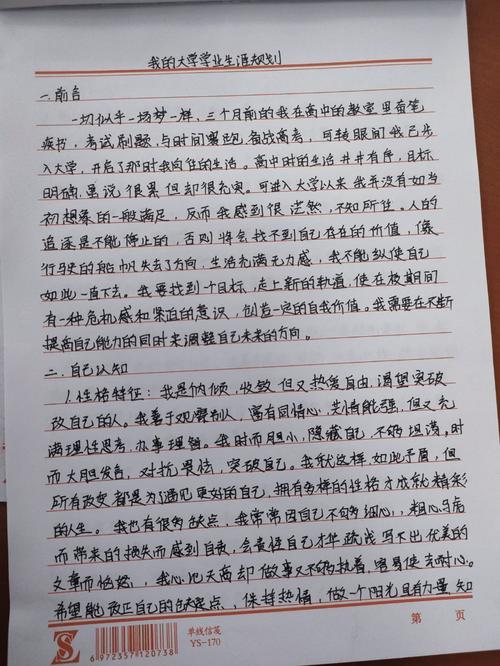 我的大学学业生涯规划
一.前言
一切似乎一场梦一样,三个月前的我在高中的教室里奋笔
疾书,考试刷题,与时间赛跑,备战高考,可转眼间我已步
入大学,开启了那时我向往的生活。高中时的生活井井有序,目标
明确,虽说很累但却很充实。可进入大学以来我并没有如当
初想象的一般满足,反而我感到很茫然,不知所往。人的
追逐是不能停止的,否则将会找不到自己存在的价值,像
行驶的船帆失去了方向,生活充满无力感,我不能纵使自己
如此一直下去。我要找到一个目标,走上新的轨道,使在校期间
有一种危机感和紧迫的意识,创造一定的自我价值。我需要在不断
提高自己能力的同时来调整自己未来的方向。
二.自己认知
1.性格特征:我是内倾,收敛但又热爱自由,渴望突破
改自己的人。我善于观察别人,富有同情心,共情能强,但又充
满理性思考,办事理智。我时而胆小,隐藏自己,不够坦荡,时
而大胆发言,对抗畏怯,突破自己。我就这样如此矛盾,但
所有改变都是为了遇见更好的自己,拥有多样的性格才成就精彩
的人生。我也有很多缺点,我常常因自己不够细心,粗心马虎
而带来的损失而感到自责,会责怪自己才华疏浅写不出优美的
文章而恼怒,我心比天高却做事又不够执着,容易使去耐心。
希望能改正自己的缺点,保持热情,做一个阳光且有力量,知
第 页
S
6 972357 120738
单线信笺
YS-170